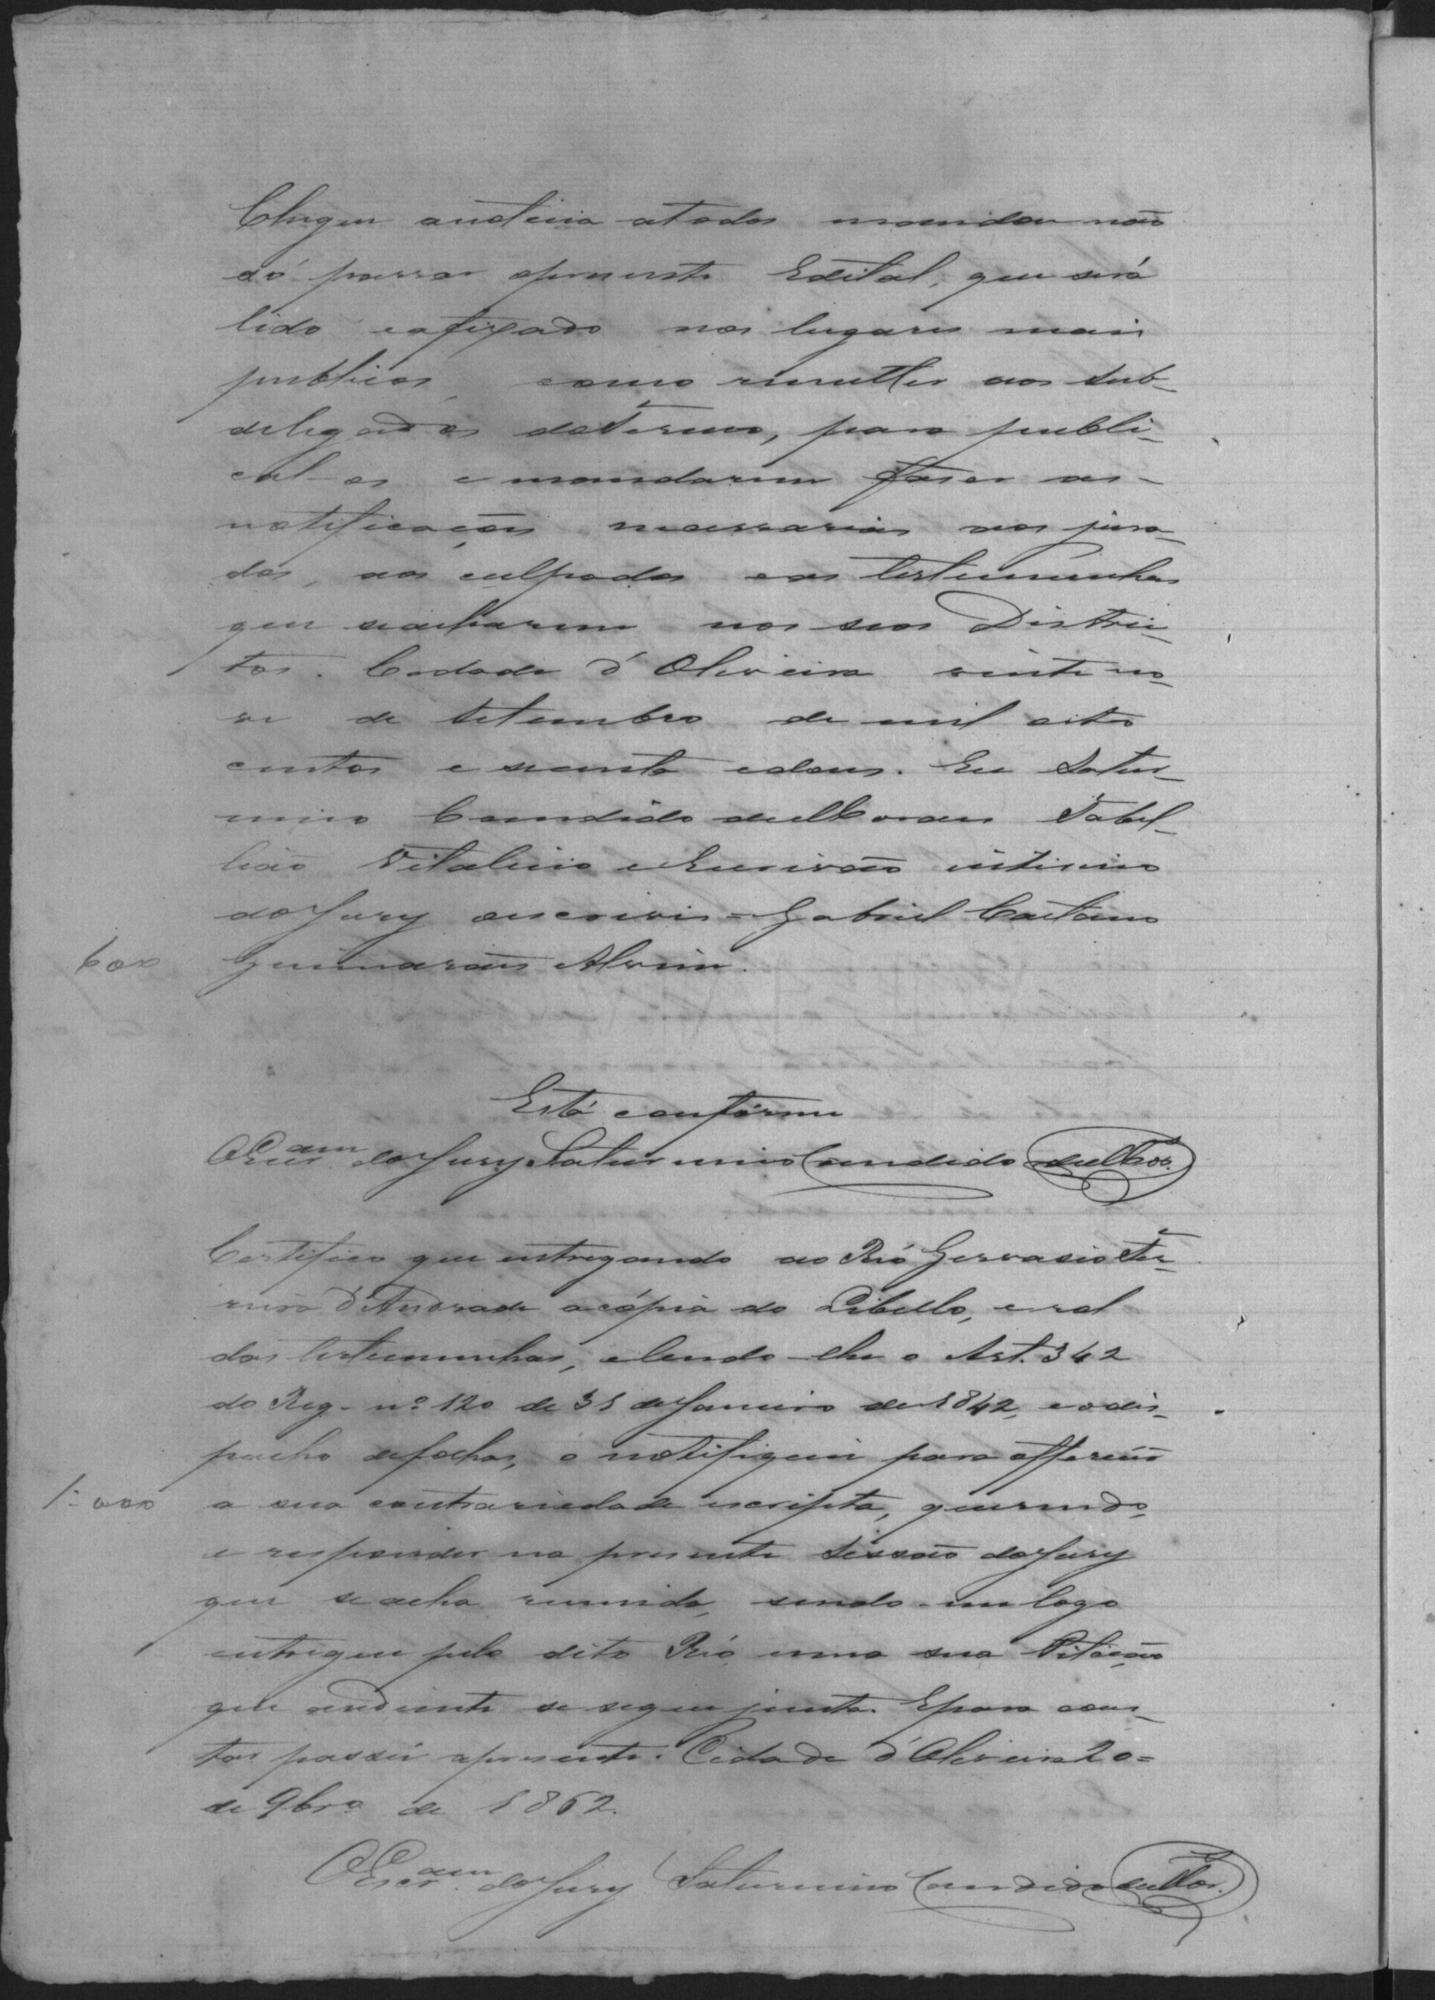 Chegue anoticia atodos mandou não
só passar opresente Edital, que será
lido eafixado nos lugares mais
publicos como remetter aos sub-
delegados dotermo, para publi-
cal-os e mandarem fazer as-
notificaçoens necessarias aos jura-
dos, aos culpados eas testemunhas
que seacharem nos seos Distric-
tos. Cidade d'Oliveira vinte no-
ve de Setembro de mil oito
centos e secenta edous. Eu Satur-
nino Candido deMoraes Tabel-
lião Vitalicio eEscrivão interino
doJury oescrivis = Gabriel Caetano
600 Guimarães Alvim.
Está conforme
OEscr.am doJury Saturnino Candido deMor.
Certifico que entregando ao Réo Gervasio Fer-
reira d'Andrade acópia do Libello, erol
das testemunhas, elendo-lhe o Art. 342
do Reg. nº 120 de 31 deJaneiro de 1842, eodes-
pacho defolhas, o notifiquei para offerecer
1:000 a sua contrariedade escripta, querendo,
e responder na presente Sessão doJury
que seacha reunida, sendo-me logo
entregue pelo dito Réo uma sua Petição
que aodiante se segue junta. Epara cons-
tar passei apresente. Cidade d'Oliveira 20=
de 9bro de 1862.
OEscr.am doJury Saturnino Candido deMor.